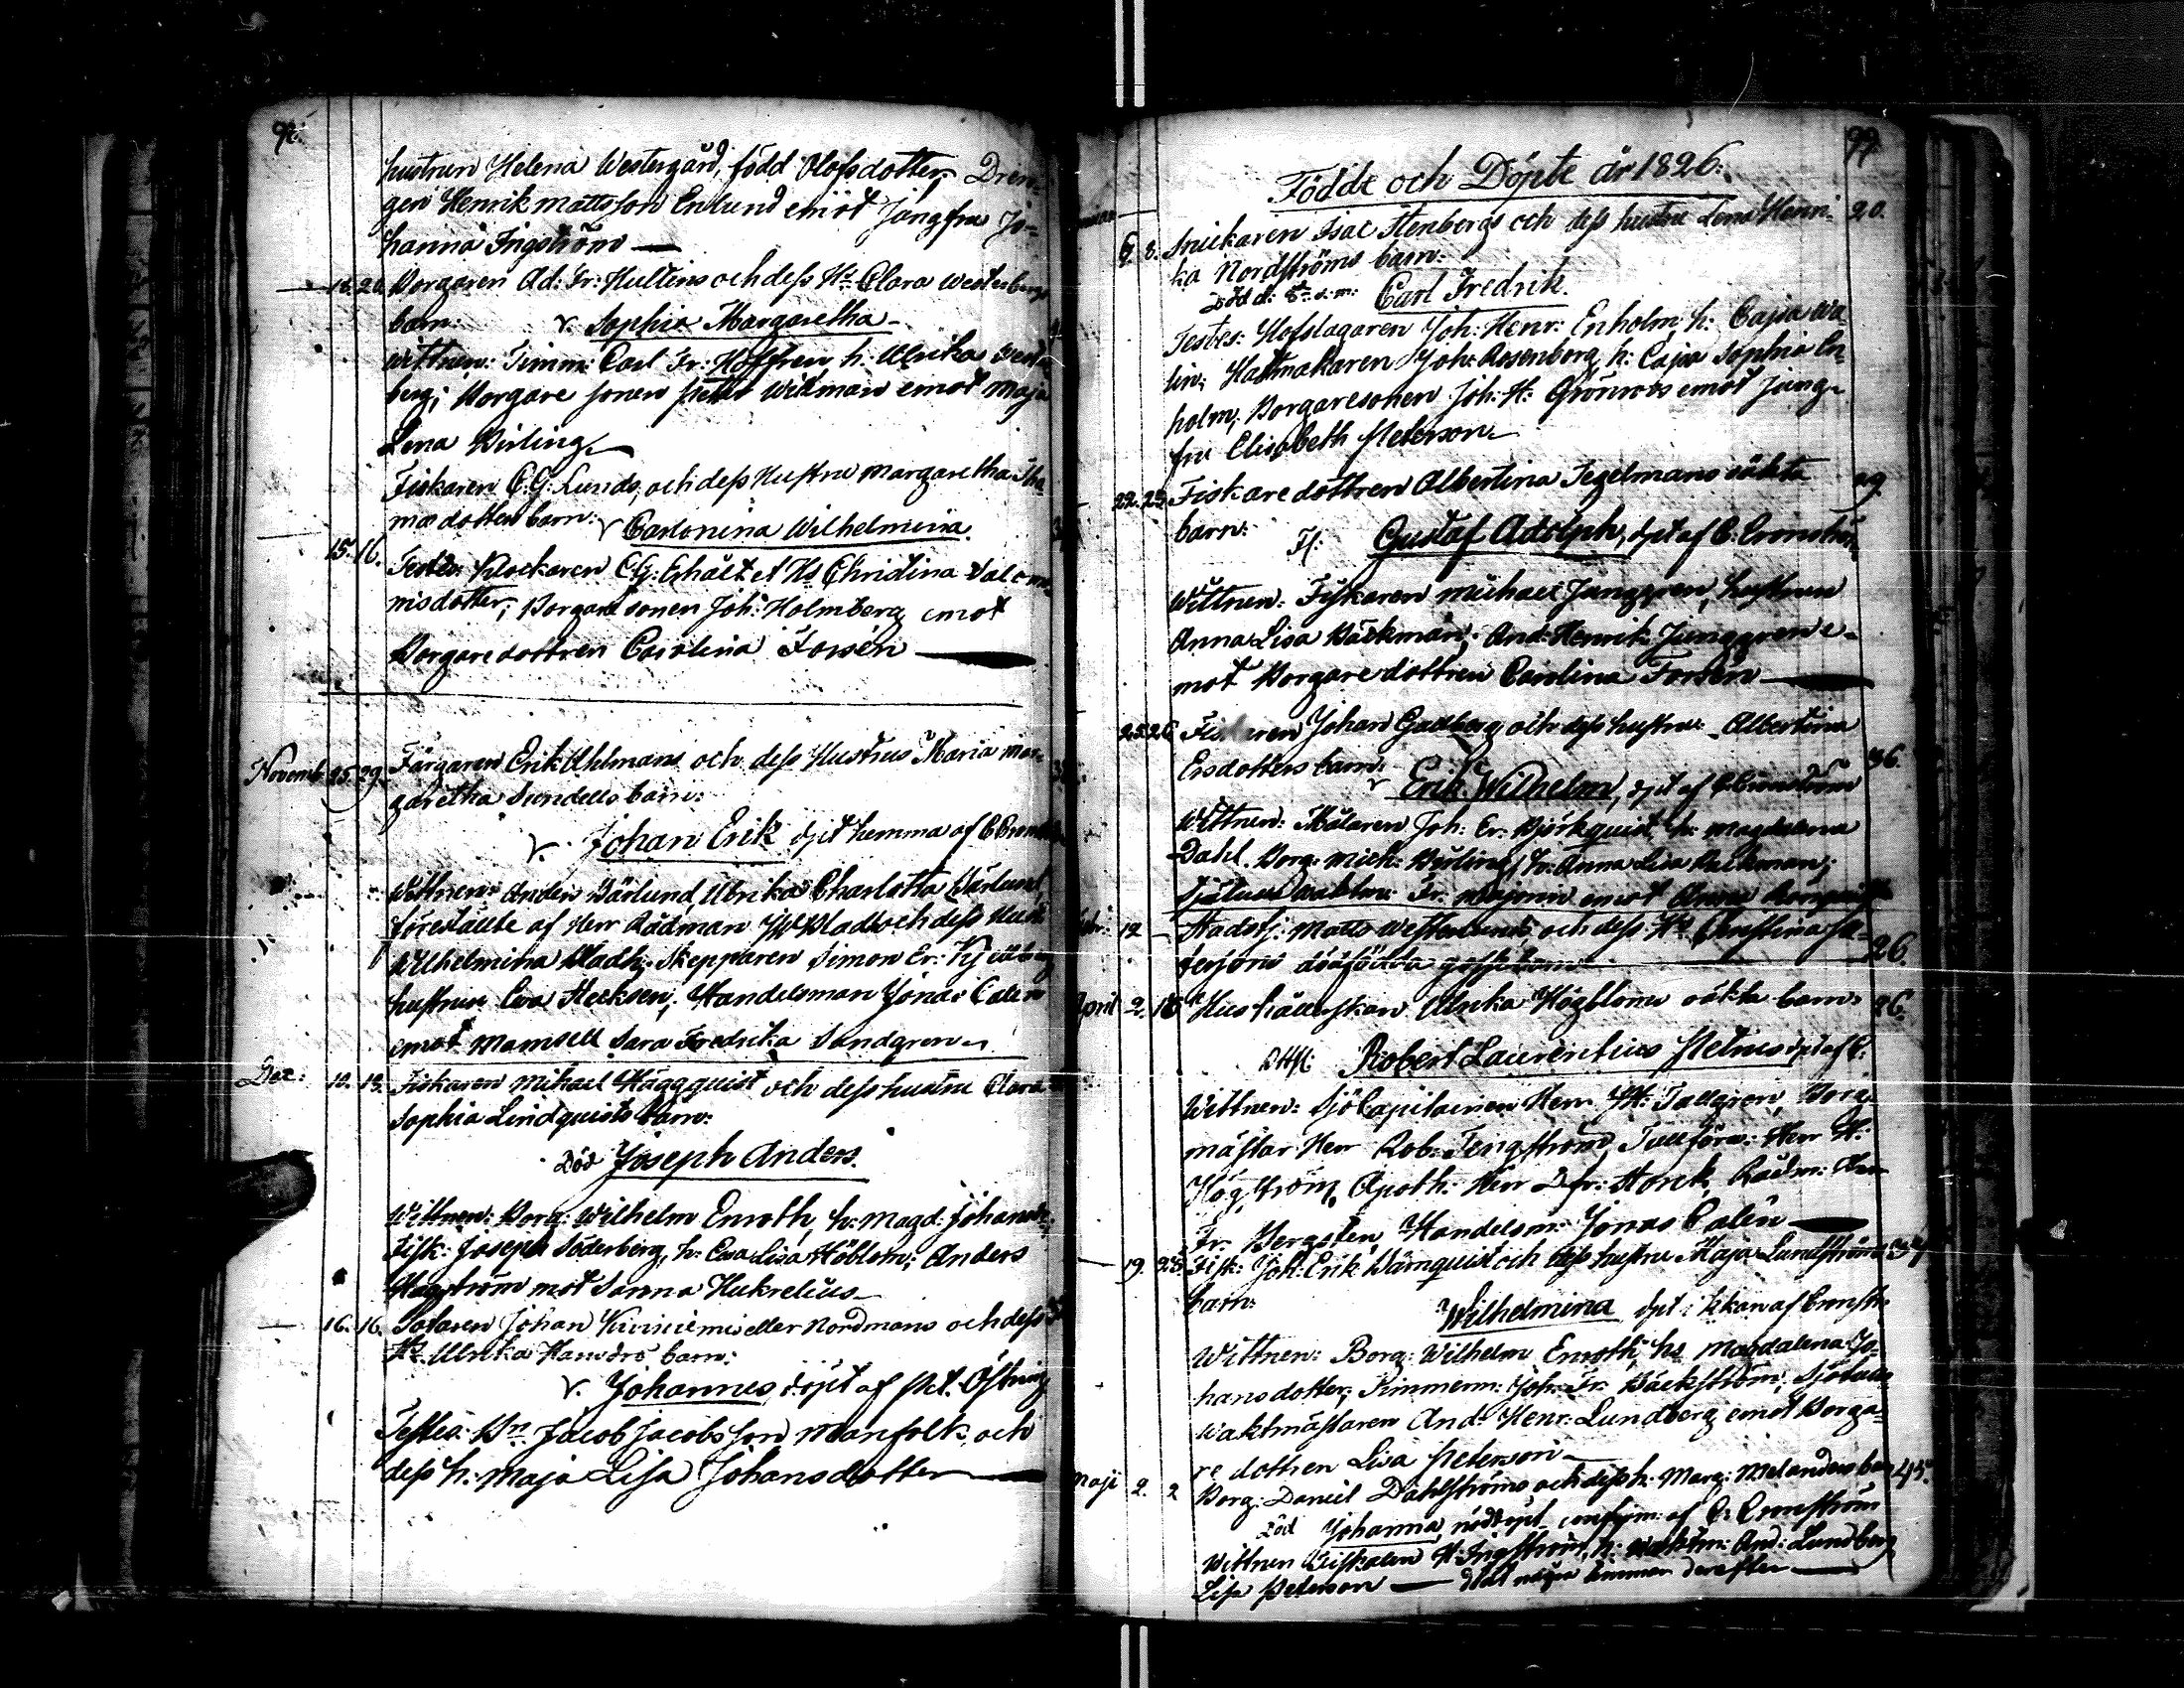 hustrun Helena Westergård, född Olofsdotter; Dren-
gen Henrik Mattsson Enlund emot Jungfru Jo-
hanna Ingström
18. 20. Borgaren Ad: Fr: Hultins och dess Hu Clara Westerbergs
barn: v. Sophia Margaretha
Wittnen: Timm: Carl Fr: Hoffren h: Ulrika Wester-
berg; Borgare sonen Petter Widman emot Maja
Lena Birling
Fiskaren C. G. Lunds, och dess Hustru Margaretha Tho-
masdotters barn: v Carlonina Wilhelmina
15. 16. Testes: Klockaren C. G. Erhält et Hu Christina Salomo-
nisdotter; Borgare sonen Joh: Holmberg emot
Borgaredottren Carolina Forsén
Novemb. 25. 29. Färgaren Erik Uhlmans och dess Hustrus Maria Mar-
garetha Sundells barn:
v. Johan Erik döpt hemma af C. Cronström
Wittnen: Anders Wärlund, Ulrika Charlotta Wärlund,
föreställte af Herr Rådman J. W. Bladh och dess Hustru
Wilhelmina Bladh; Skepparen Simon Er: Sjöberg
hustrun Eva Stecksen; Handelsman Jonas Calén
emot Mamsell Sara Fredrika Sandgren
Dec: 10. 13. Fiskaren Mikael Häggquist och dess hustru Clara
Sophia Lindquists barn:
Död Joseph Anders.
Wittnen: Borg: Wilhelm Enroth, h: Magd: Johansdr;
Fisk: Joseph Söderberg, h: Caisa Lisa Höblom; Anders
Hagström mot Sanna Hukrelius
16. 16. Rotaren Johan Kiviniemi eller Nordmans och dess
Hu Ulrika Hansdrs barn:
v. Johannes döpt af Pet. Östring
Testes: Bn Jacob Jacobsson Manfolk och
dess h: Maja Lisa Johansdotter
99.
Födde och Döpte år 1826.
6. 8. Snickaren Isac Stenbergs och dess hustru Lena Henri- 20.
ka Nordströms barn:
Död d: 8 s. m: Carl Fredrik.
Testes: Hofslagaren Joh: Henr: Enholm, h: Cajsa Wa-
lin; Hattmakaren Joh: Rosenberg h: Cajsa Sophia En-
holm; Borgaresonen Joh: H: Grönroos emot jung-
fru Elisabeth Peterson
22. 23. Fiskaredottren Albertina Tegelmans oäkta 29.
barn: Gustaf Adolph, döpt af C. Cronström
Wittnen: Fiskaren Michael Junggren, hustrun
Anna Lisa Bäckman; And: Henrik Junggren e-
mot Borgaredottren Carolina Forsén
25. 26. Fiskaren Johan Gadberg och dess hustru Albertina
Ersdotters barn: 36.
v Erik Wilhelm, döpt af C. Cronström
Wittnen: Målaren Joh: Er: Björkquist, h: Magdalena
Dahl. Borg: Mich: Birling, h: Anna Lisa Backman;
12 Stadsf: Matts Westerlunds och dess Hu Christina
dödfödda gossebarn 26.
April 2. 18 Hushållerskan Ulrika Högbloms oäkta barn: 26.
Robert Laurentius Petrus döpt af C.
Wittnen: Sjö Capitainen Herr Tallgren, Borg-
mästar Herr Rob: Tengström, Tullförv: Herr H:
Högström, Apoth: Herr D: fr: Horck, Rådm: Herr
Fr. Bergsten, Handelsm: Jonas Calén
19. 23. Fisk: Joh: Erik Wärnquist och dess hustru Maja Lundströms 37
barn: Wilhelmina döpt i kkan af Cronstr.
Wittnen: Borg: Wilhelm Enroth, hu Magdalena Jo-
hansdotter; Timmerm: Joh: Fr: Bäckström, Sjötulls
waktmästaren And: Henr: Lundberg emot Borga-
redottren Lisa Peterson
Maji 2. 2 Borg: Daniel Dahlströms och dess h: Marg: Melanders barn 45.
Död Johanna, nöddöpt, confirm: af C. Cronström
Wittnen Fiskalen H: Ingström, h: Waktm: And: Lundberg,
Lisa Peterson